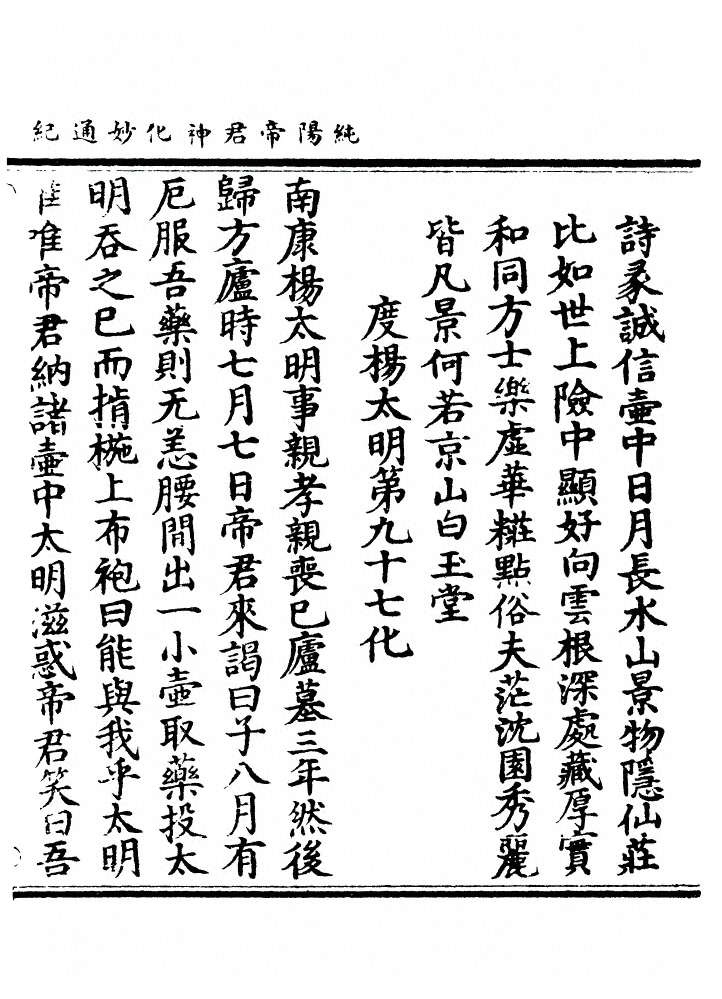 純陽帝君神化妙通紀
詩彖誠信壺中日月長水山景物隱仙莊
比如世上險中顯好向雲根深處藏厚實
和同方士樂虛華糚點俗夫茫沈園秀麗
皆凡景何若京山白玉堂
度楊太明第九十七化
南康楊太明事親孝親喪已廬墓三年然後
歸方廬時七月七日帝君來謁曰子八月有
厄服吾藥則无恙腰間出一小壺取藥投太
明吞之已而指椸上布袍曰能與我乎太明
唯帝君納諸壺中太明滋惑帝君笑曰吾